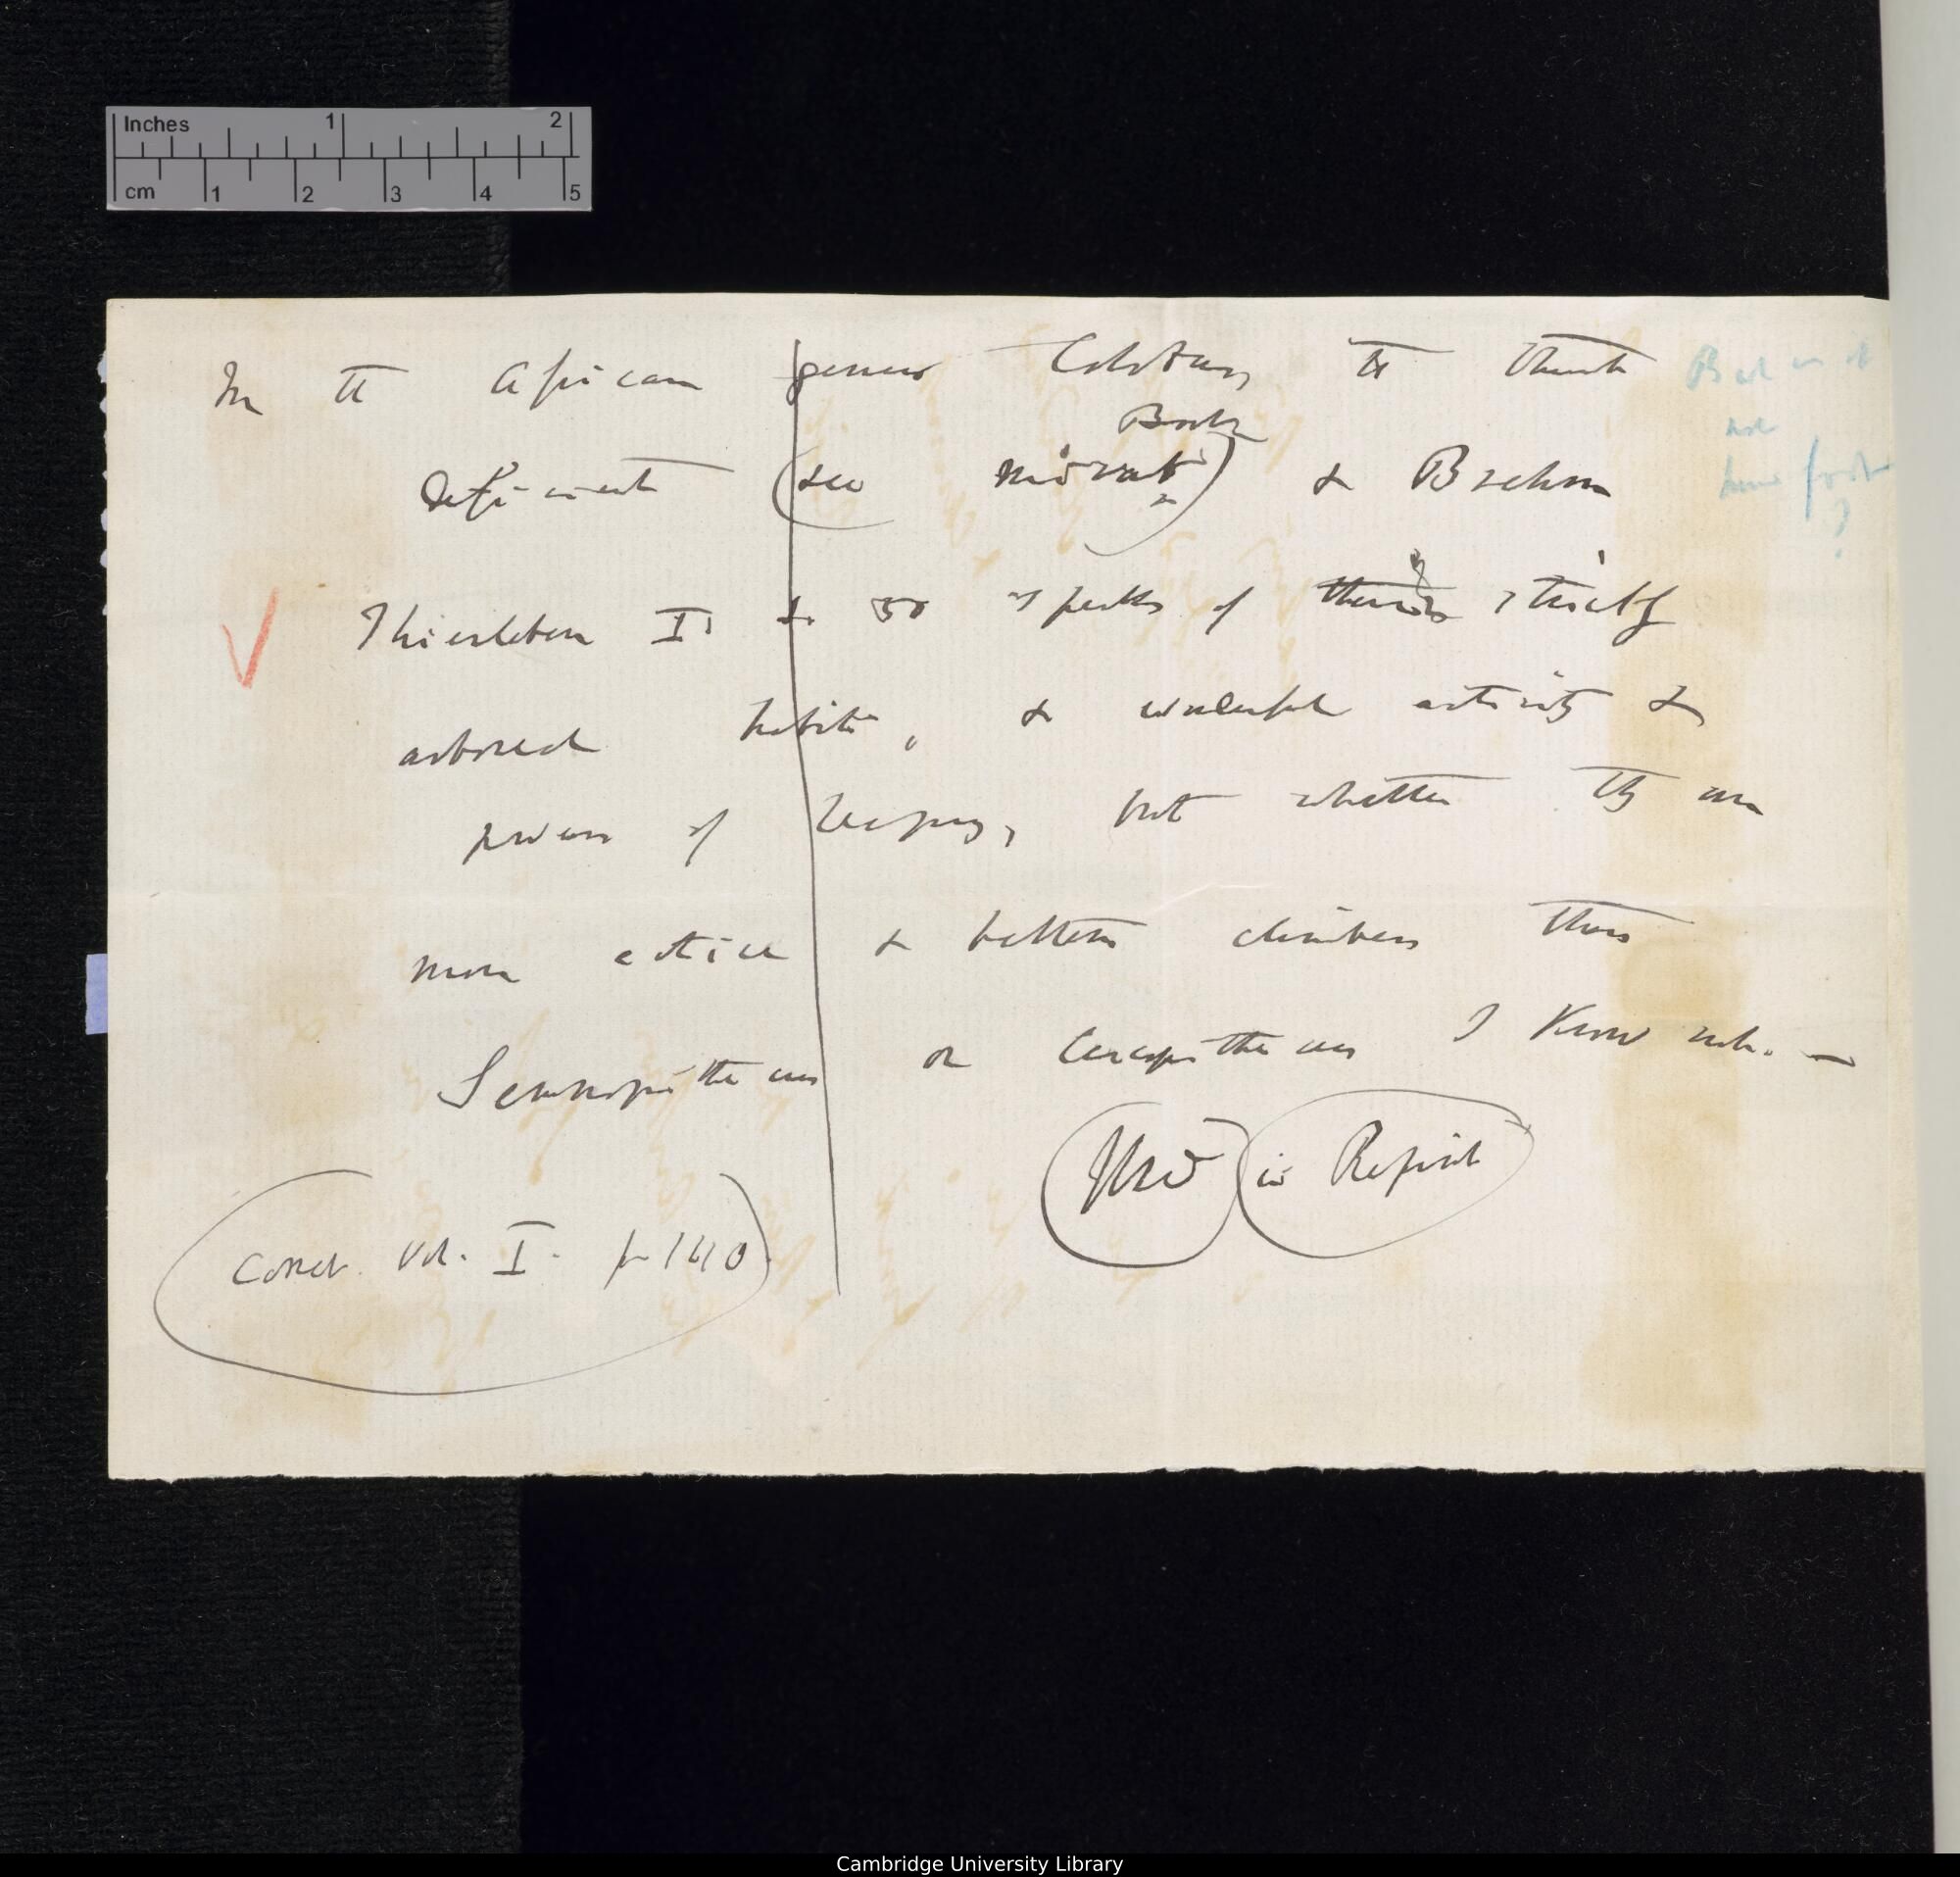 Inches 1 2
cm 1 2 3 4 5
In the African genus Colobus, the thumb
Book
deficient (see Mivart) & Brehm
Thierleben I. s. 50 speaks of their strictly
arboreal habits, & wonderful activity &
power of leaping, but whether they are
more active & better climbers than
Semnopithecus or Cercopithecus I know not. —
in Reprint
Correct. Vol. I. p 140
But is it
not
hind foot
?
Cambridge University Library